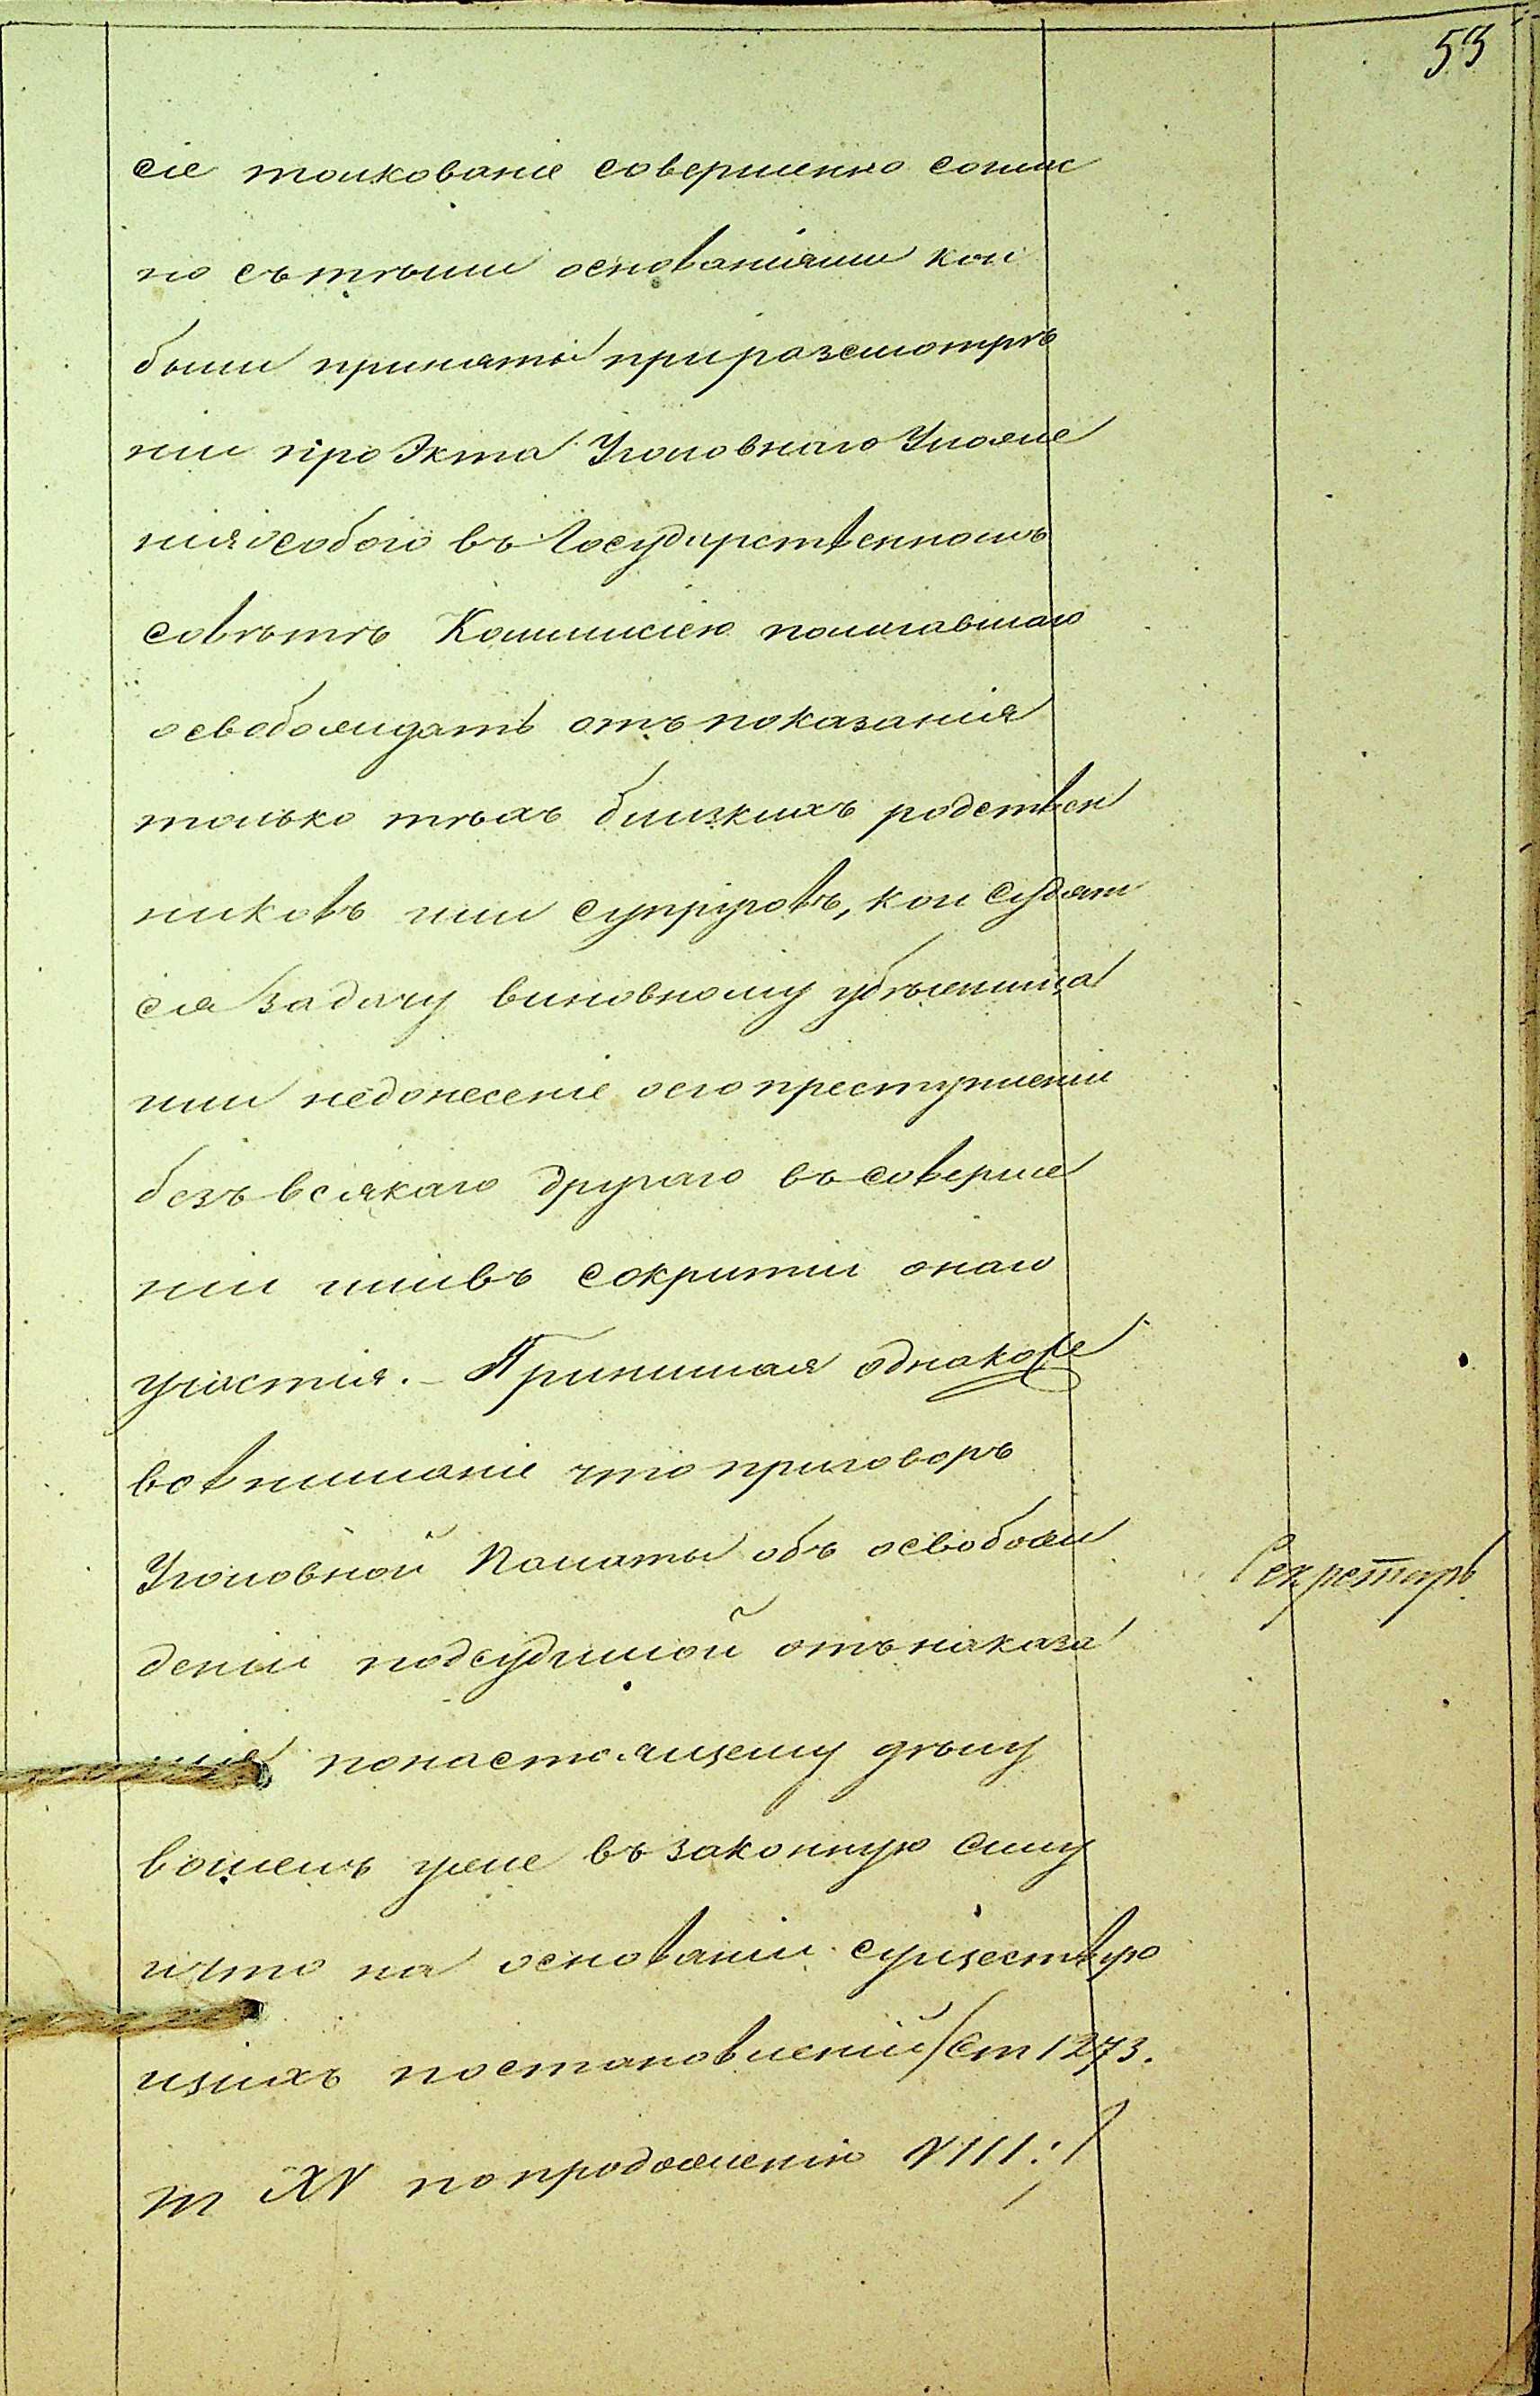 53
сіе толкованіе совершенно соглас
но съ тѣми основаніями кои
были приняты при разсмотрѣ
ніи проэкта Уголовнаго Уложе
нія особою въ Государственномъ
совѣтѣ Коммисіею полагавшаго
освобождать отъ показанія
только тѣхъ близкихъ родствен
никовъ или супруговъ, кои судят
ся за дачу виновному убѣжища
или недонесеніе о его преступленіи
безъ всякаго другаго въ соверше
ніи или въ сокрытіи онаго
участія. – Принимая однакоже
во вниманіе что приговоръ
Уголовной Палаты объ освобож
деніи подсудимой отъ наказа
нія по настоящему дѣлу
вошелъ уже въ законную силу
и что на основаніи существую
щихъ постановленій /ст 1273.
т XV по продолженію VIII:/
Секретарь